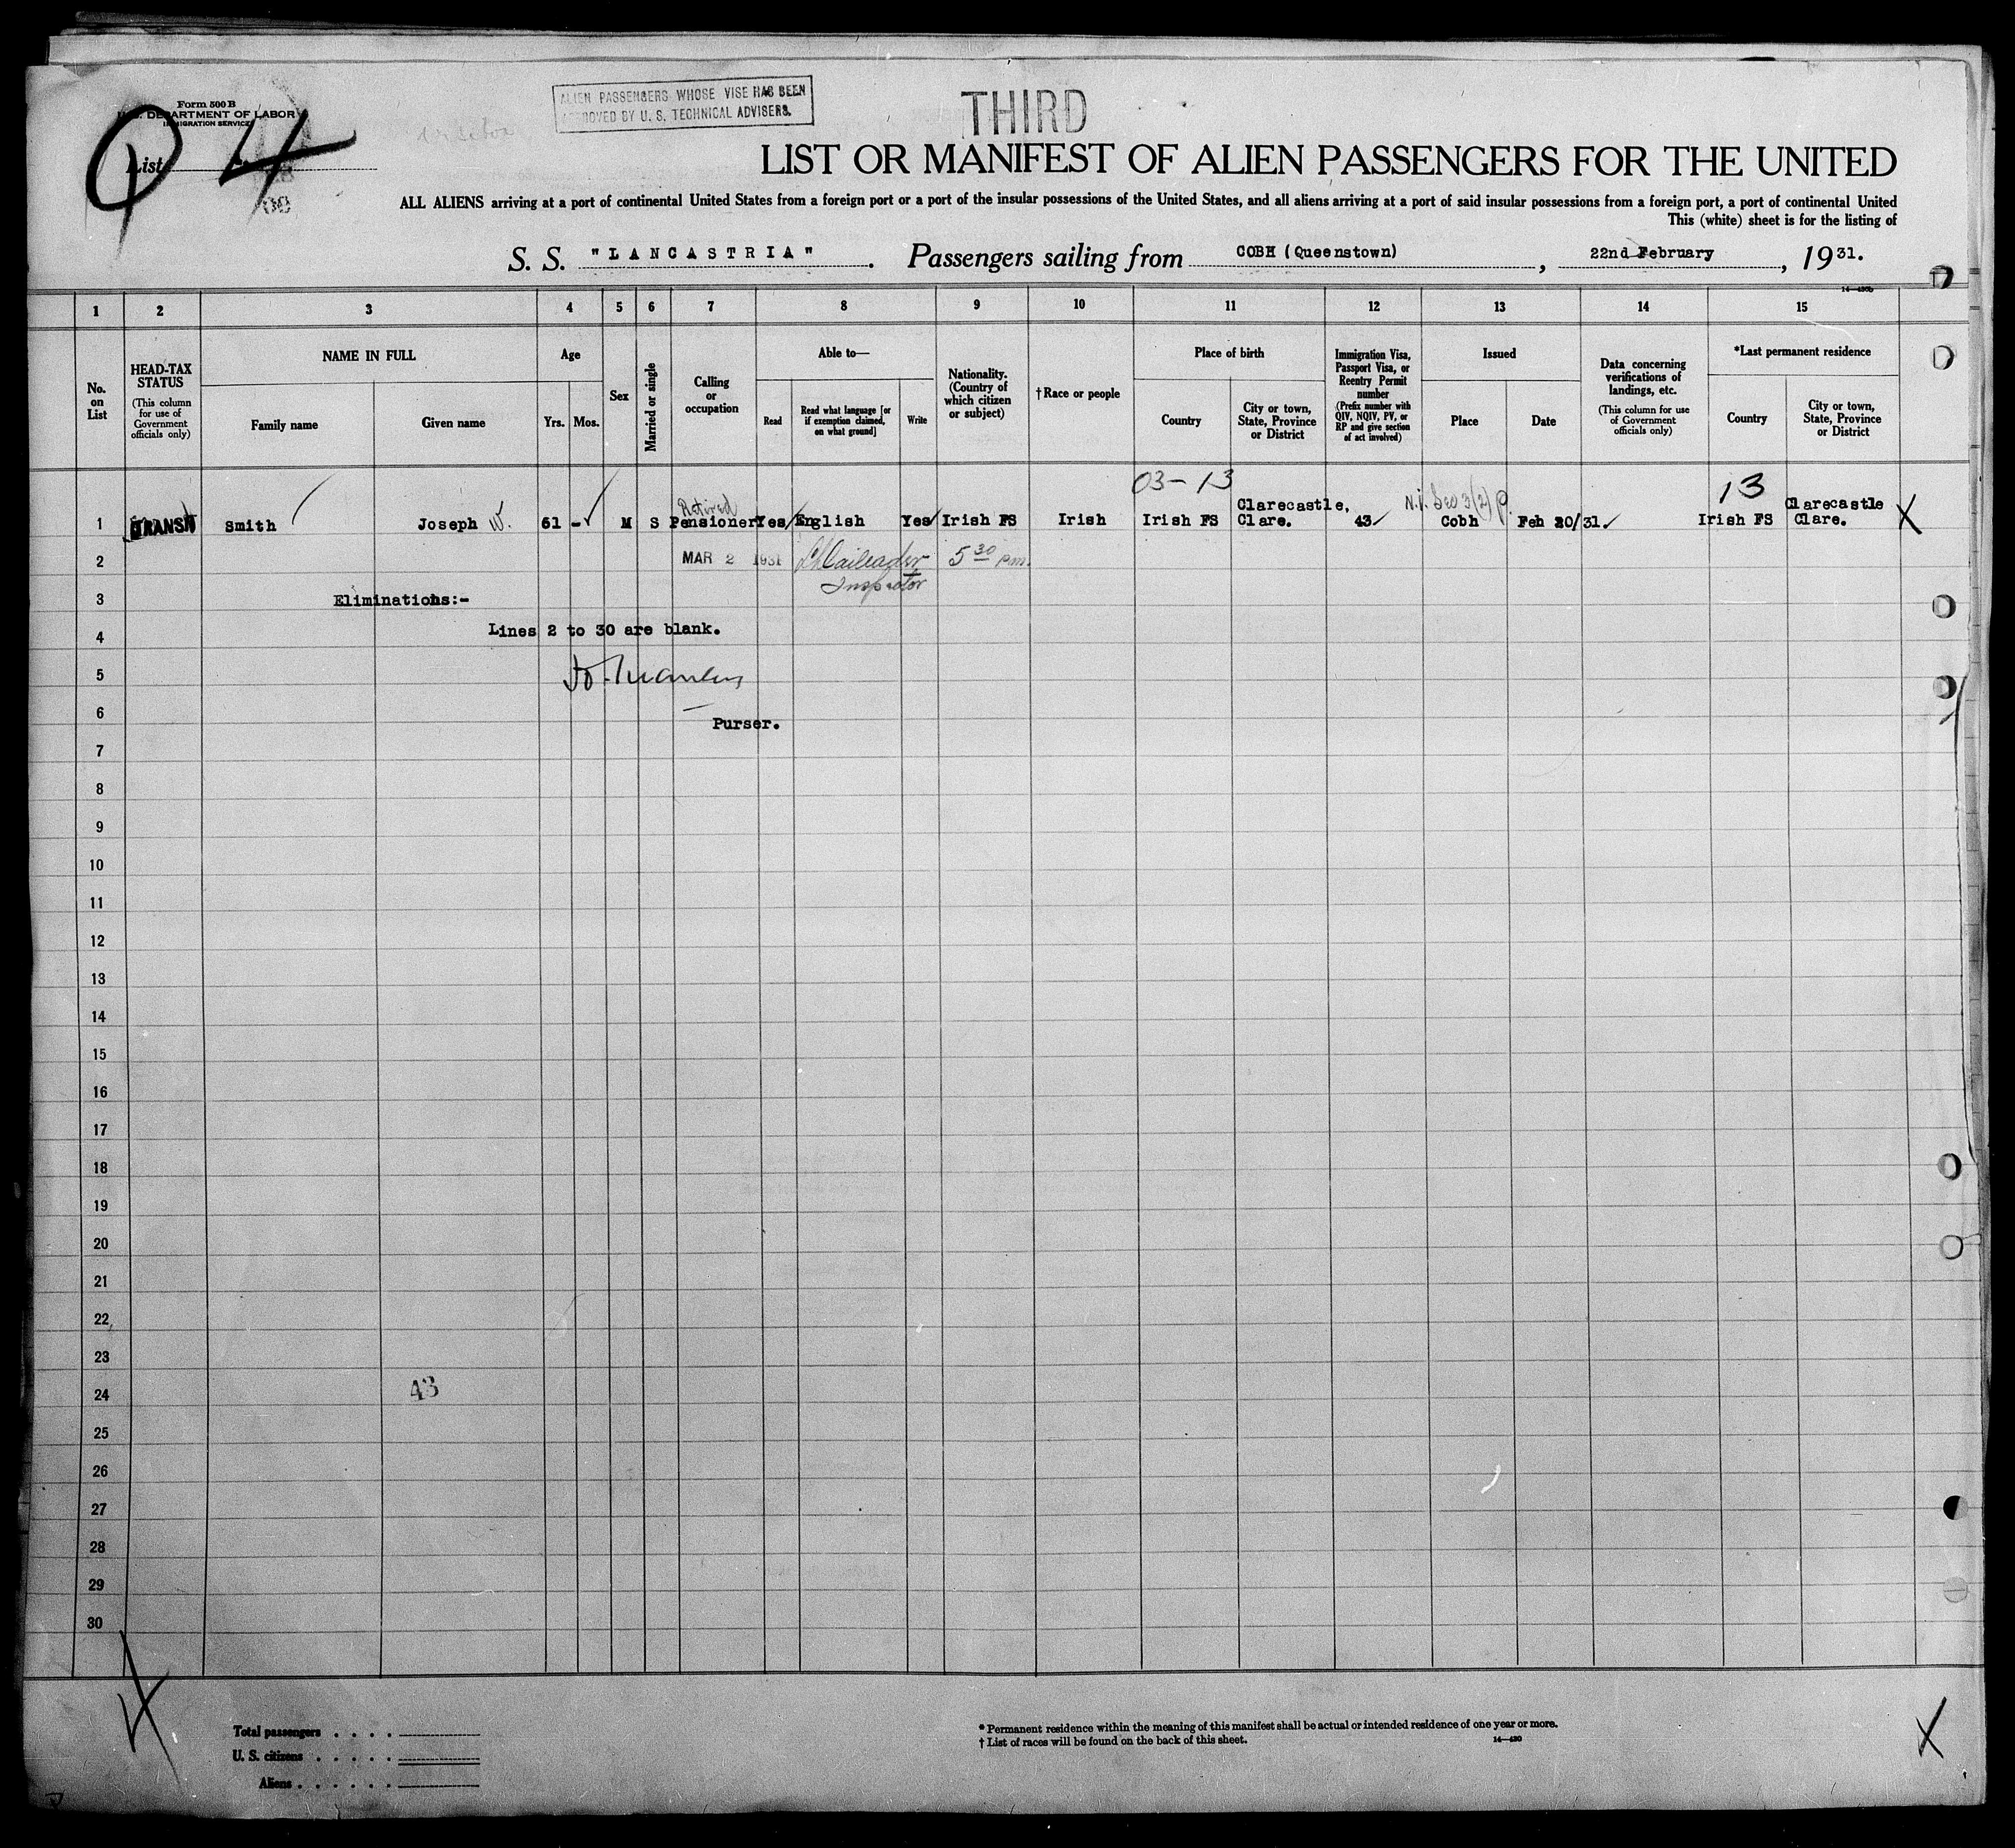 Form 500 B
U.S. DEPARTMENT OF LABOR
IMMIGRATION SERVICE
List 4
ALIEN PASSENGERS WHOSE VISE HAS BEEN
APPROVED BY U. S. TECHNICAL ADVISERS.
THIRD
LIST OR MANIFEST OF ALIEN PASSENGERS FOR THE UNITED
ALL ALIENS arriving at a port of continental United States from a foreign port or a port of the insular possessions of the United States, and all aliens arriving at a port of said insular possessions from a foreign port, a port of continental United
This (white) sheet is for the listing of
S. S. "LANCASTRIA". Passengers sailing from COBH (Queenstown), 22nd February, 1931.
14—430b
1 2 3 4 5 6 7 8 9 10 11 12 13 14 15
No. on List
HEAD-TAX STATUS
(This column for use of Government officials only)
NAME IN FULL
Family name
Given name
Age
Yrs. Mos.
Sex
Married or single
Calling or occupation
Able to—
Read
Read what language [or if exemption claimed, on what ground]
Write
Nationality. (Country of which citizen or subject)
†Race or people
Place of birth
Country
City or town, State, Province or District
Immigration Visa, Passport Visa, or Reentry Permit number
(Prefix number with QIV, NQIV, PV, or RP and give section of act involved)
Issued
Place
Date
Data concerning verifications of landings, etc.
(This column for use of Government officials only)
*Last permanent residence
Country
City or town, State, Province or District
03-13 13
Retired Clarecastle, N.I. Sec 3(2) Clarecastle
1 TRANSIT Smith Joseph W. 61 - M S Pensioner Yes English Yes Irish FS Irish Irish FS Clare. 43 Cobh Feb 20/31. Irish FS Clare. X
2 MAR 2 1931 5 30 pm.
Inspector
3 Eliminations:-
4 Lines 2 to 30 are blank.
5
6 Purser.
7
8
9
10
11
12
13
14
15
16
17
18
19
20
21
22
23
24 43
25
26
27
28
29
30
X X
Total passengers . . . .
U. S. citizens . . . . .
Aliens . . . . . .
* Permanent residence within the meaning of this manifest shall be actual or intended residence of one year or more.
† List of races will be found on the back of this sheet.
14—430